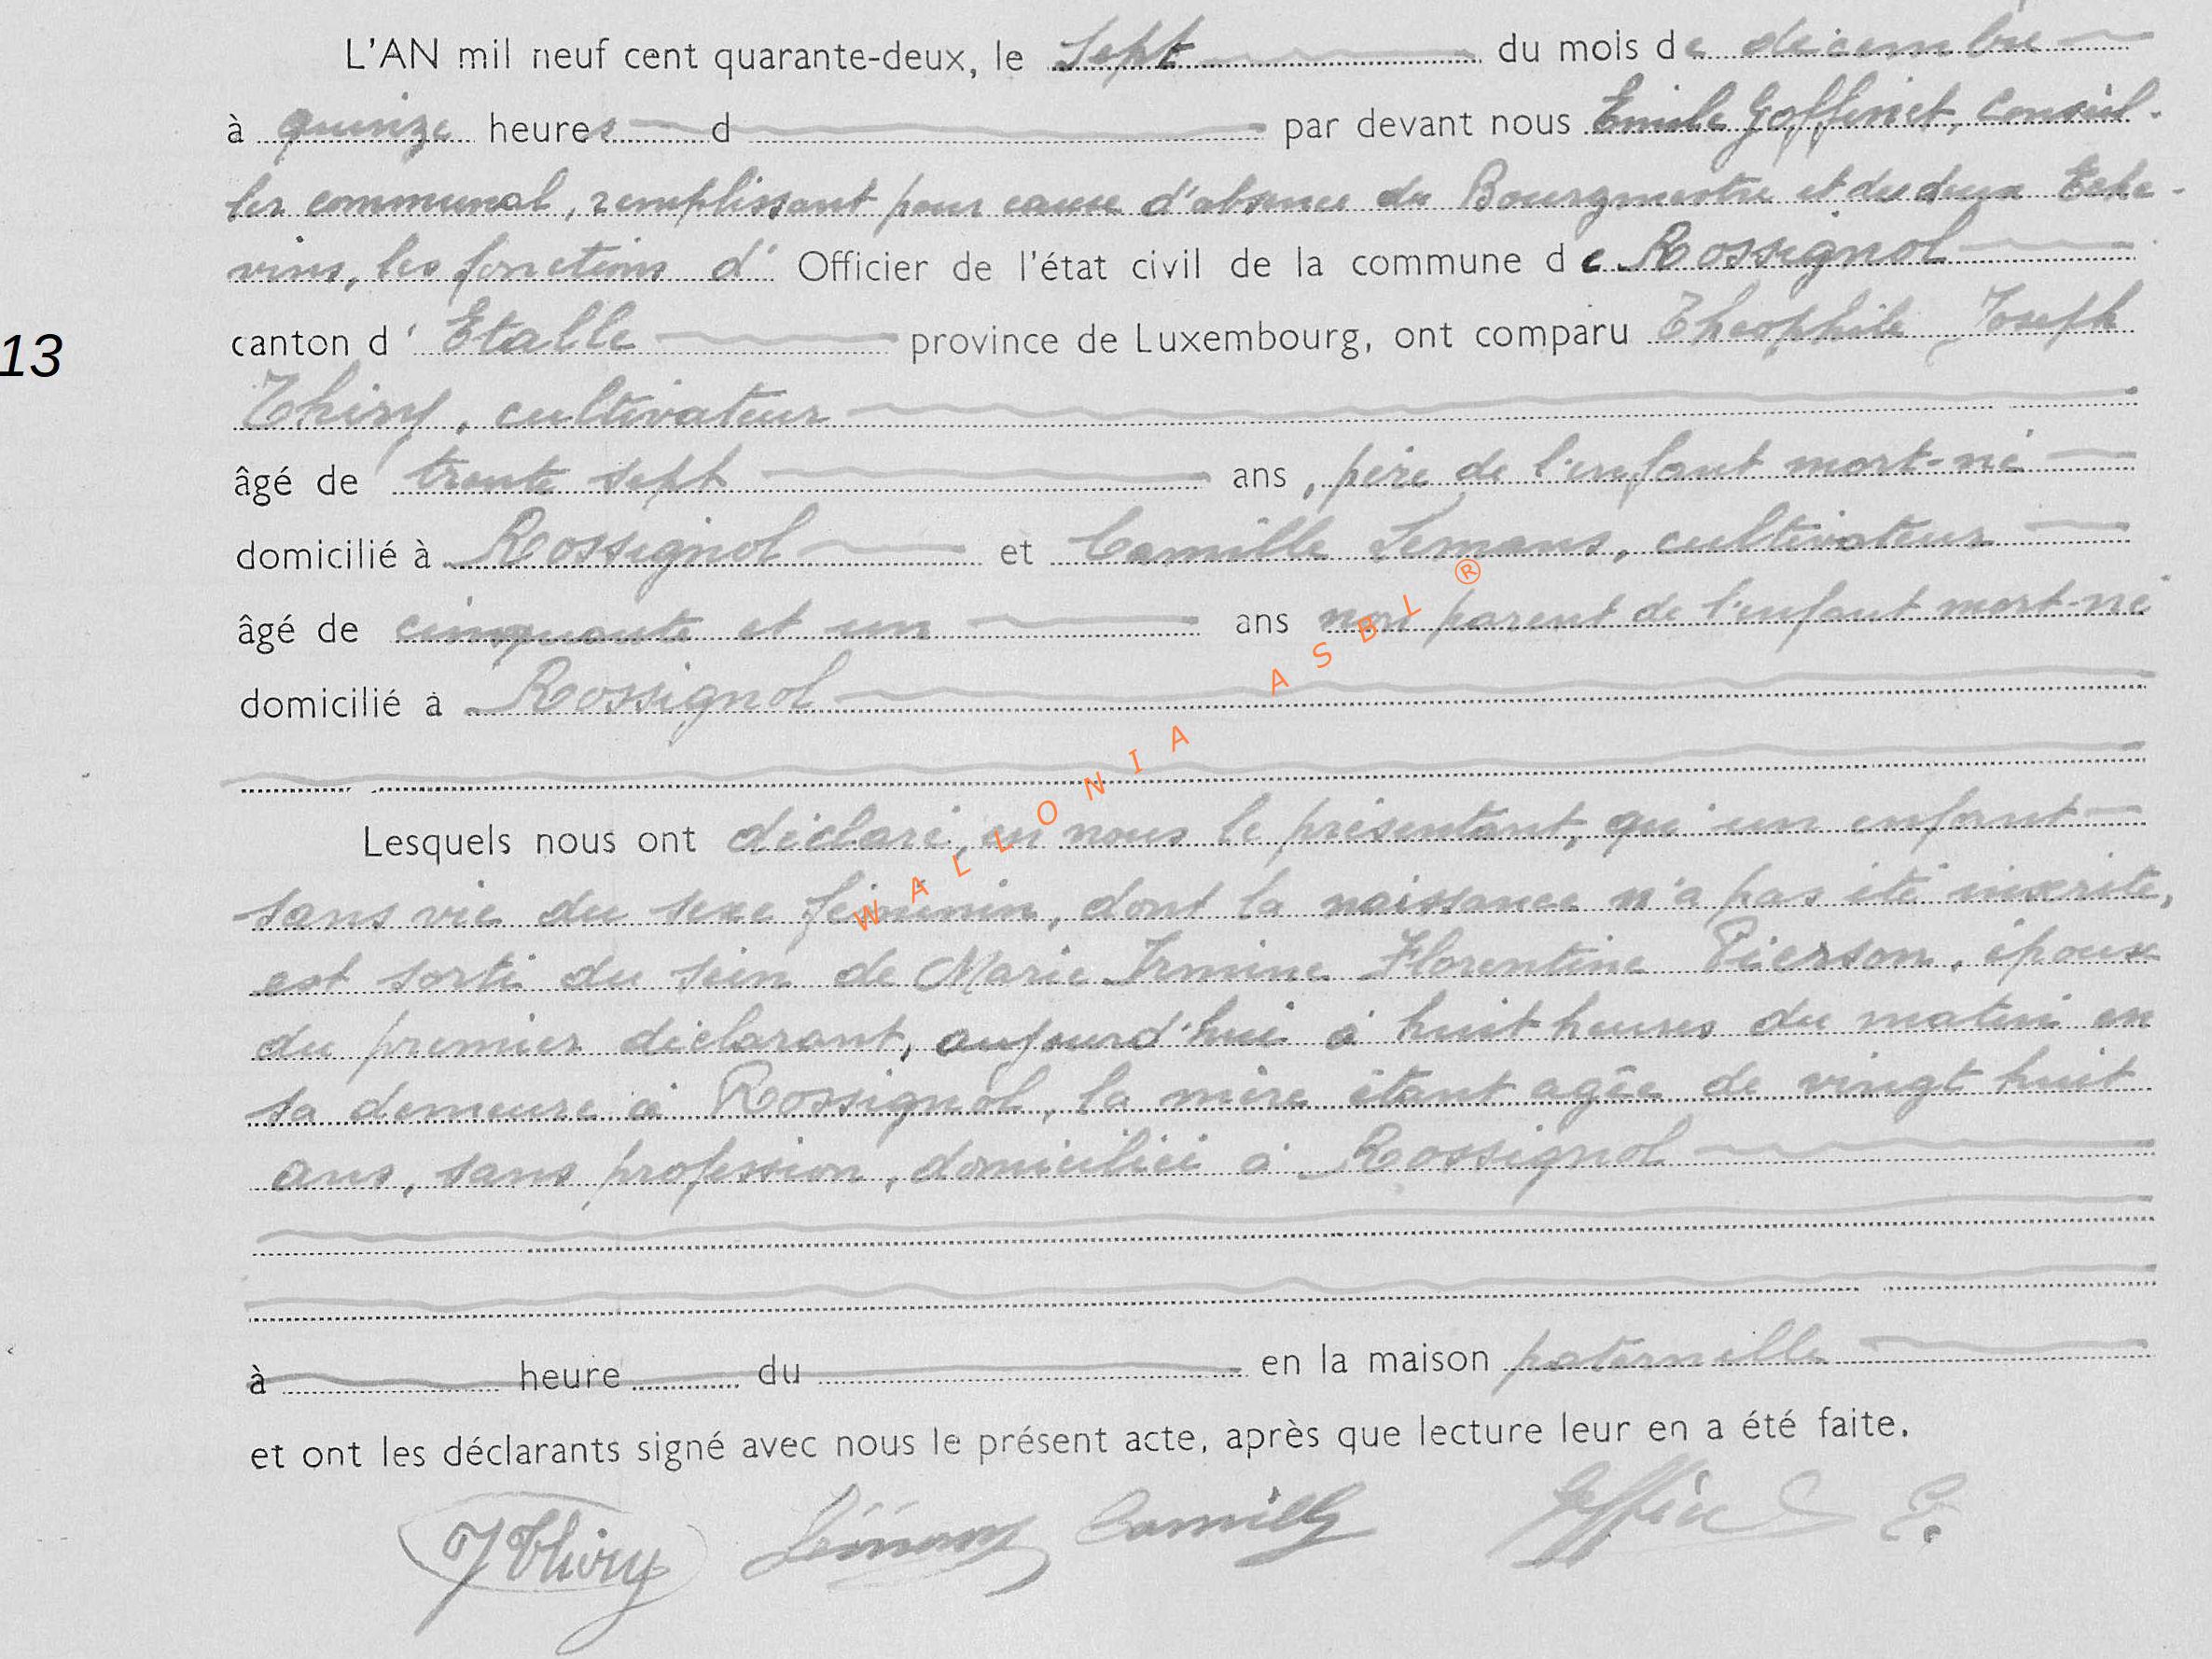 L'AN mil neuf cent quarante-deux, le sept du mois de décembre
à quinze heures d par devant nous Emile Goffinet, Conseil-
ler communal, remplissant pour cause d'absence du Bourgmestre et des deux Eche-
vins, les fonctions d' Officier de l'état civil de la commune de Rossignol
canton d' Etalle province de Luxembourg, ont comparu Théophile Joseph
13
Thiry, cultivateur
âgé de trente sept ans, père de l'enfant mort-né
domicilié à Rossignol et Camille Lemans, cultivateur
âgé de cinquante et un ans non parent de l'enfant mort-né
domicilié à Rossignol
Lesquels nous ont déclaré, en nous le présentant, qu'un enfant
sans vie du sexe féminin, dont la naissance n'a pas été inscrite,
est sorti du sein de Marie Irmine Florentine Pierson, épouse
du premier déclarant, aujourd'hui à huit heures du matin en
sa demeure à Rossignol, la mère étant agée de vingt huit
ans, sans profession, domiciliée à Rossignol
à heure du en la maison paternelle
et ont les déclarants signé avec nous le présent acte, après que lecture leur en a été faite.
J Thiry Camille E.
WALLONIA ASBL ®